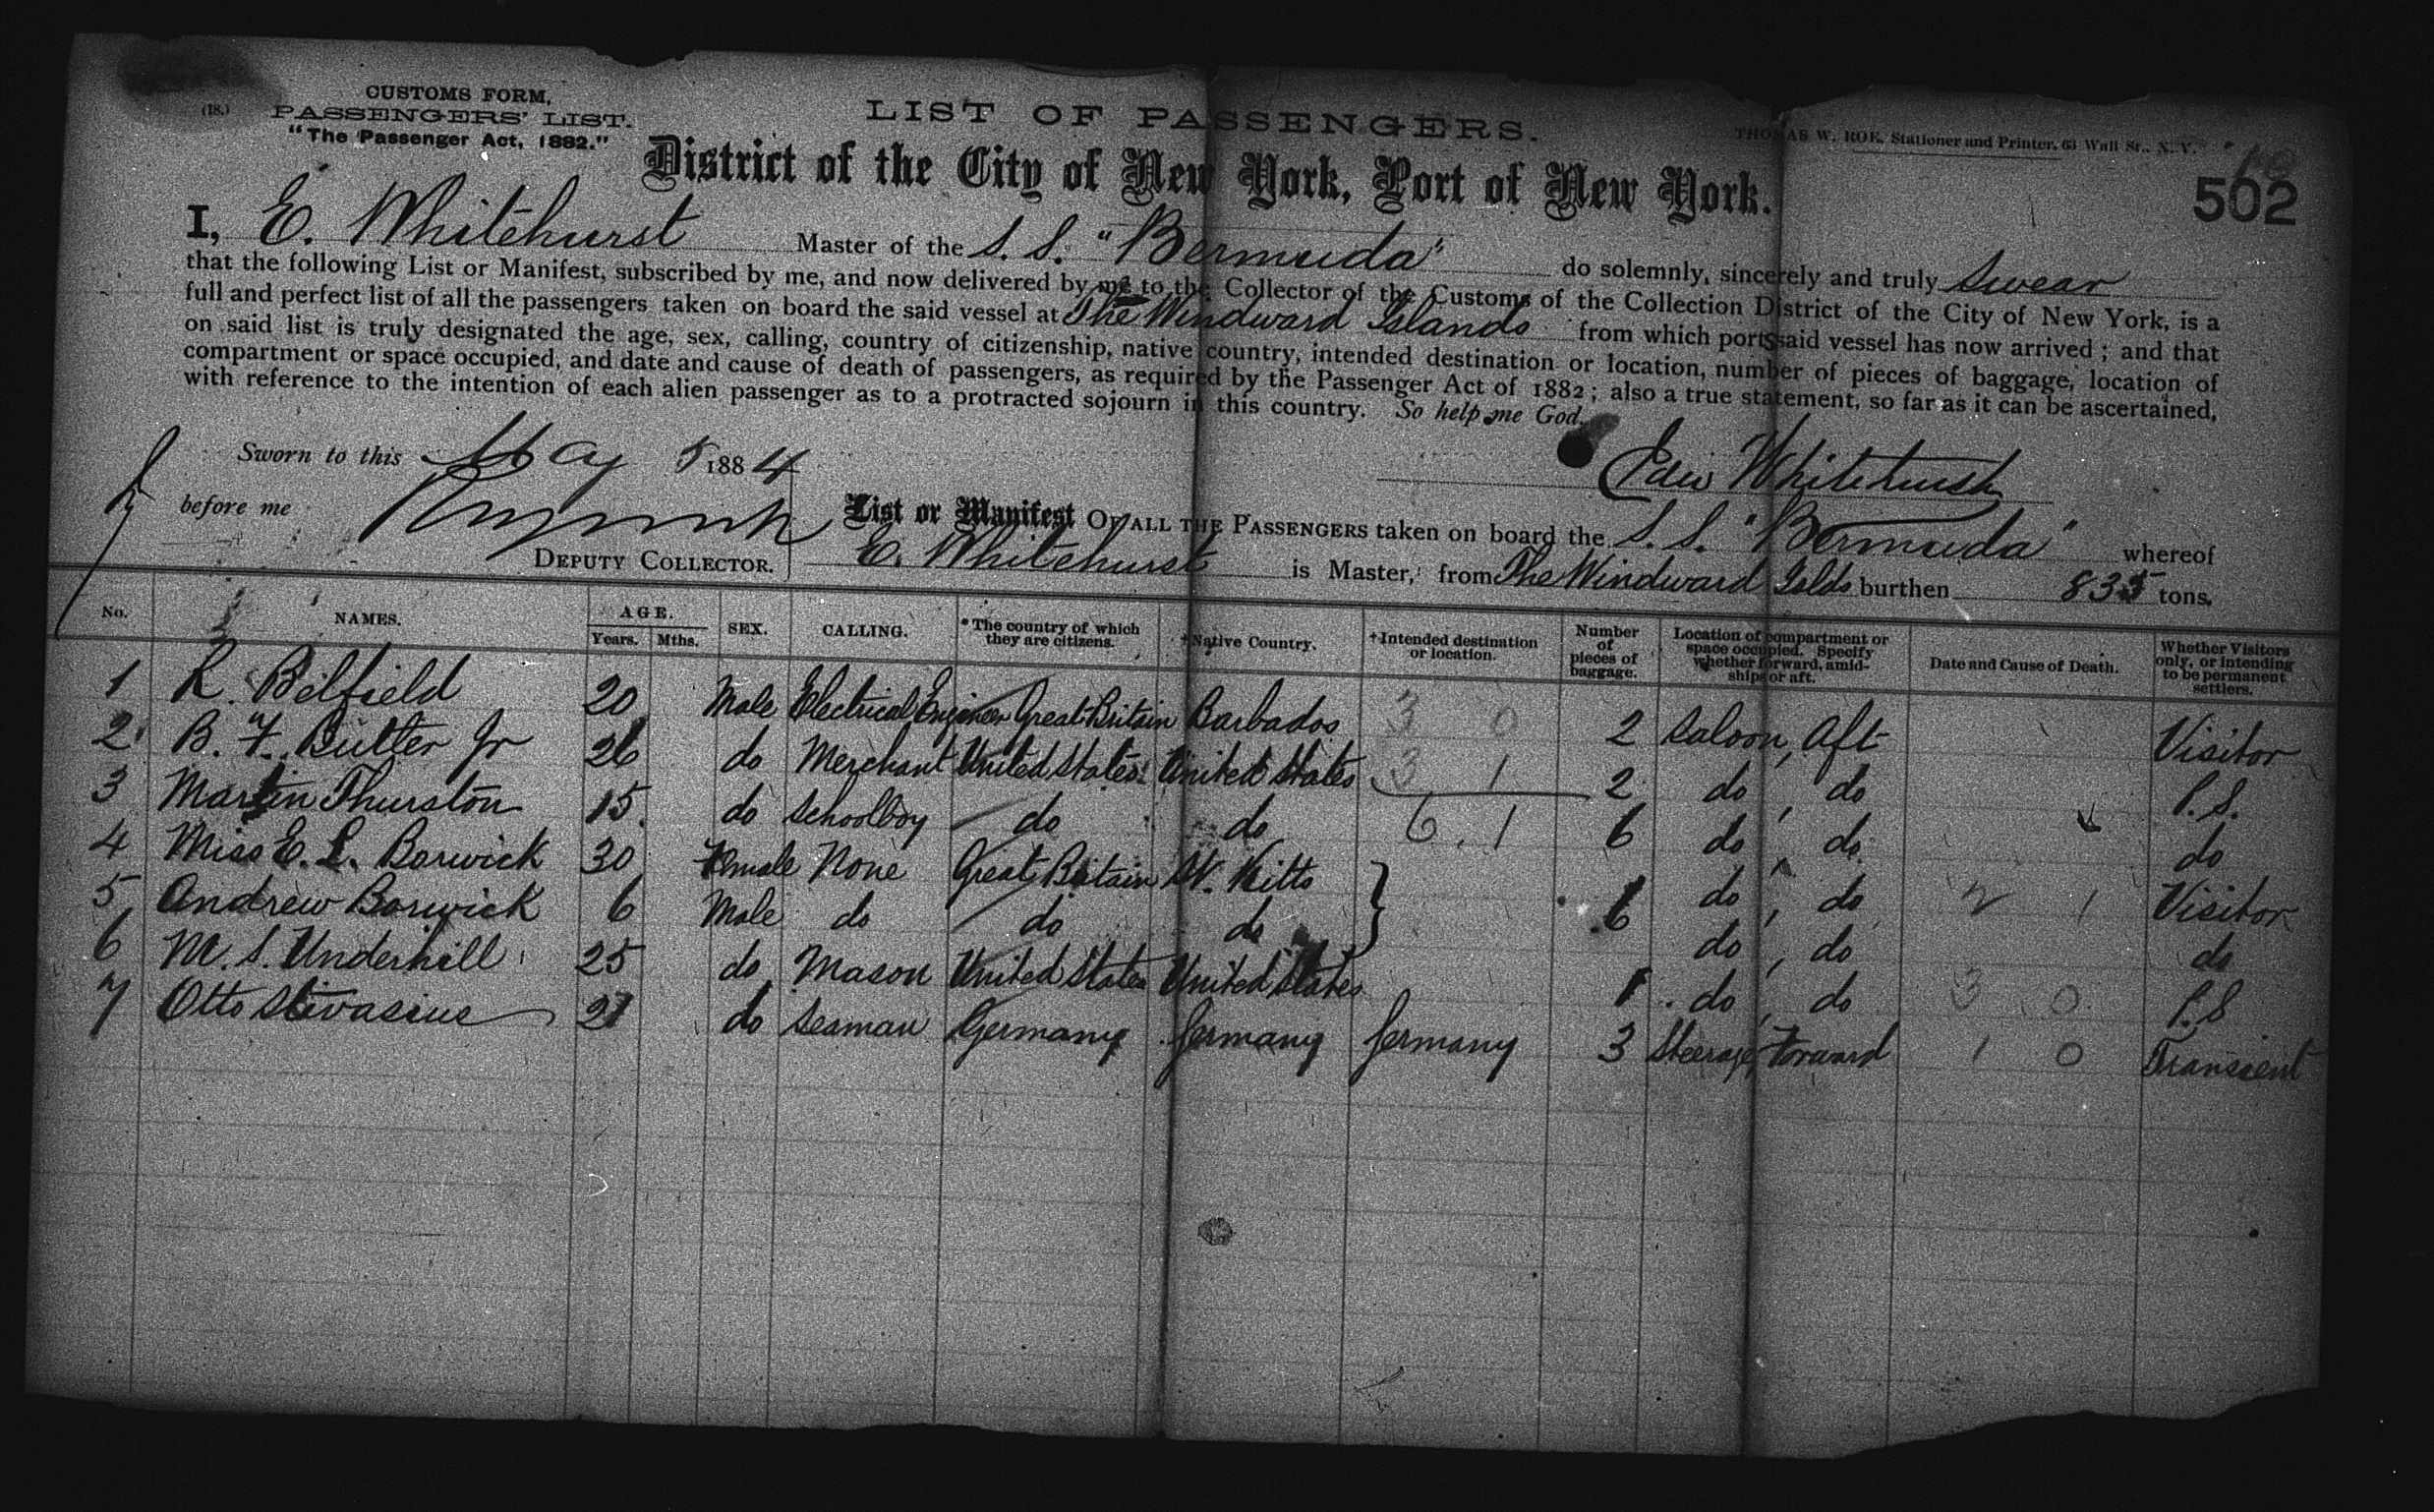 (18.)
CUSTOMS FORM,
PASSENGERS' LIST.
"The Passenger Act, 1882."
LIST OF PASSENGERS.
THOMAS W. ROE, Stationer and Printer, 63 Wall St., N. Y.
District of the City of New York, Port of New York.
502
I, E. Whitehurst Master of the S. S. "Bermuda" do solemnly, sincerely and truly swear
that the following List or Manifest, subscribed by me, and now delivered by me to the Collector of the Customs of the Collection District of the City of New York, is a
full and perfect list of all the passengers taken on board the said vessel at The Windward Islands from which ports said vessel has now arrived; and that
on said list is truly designated the age, sex, calling, country of citizenship, native country, intended destination or location, number of pieces of baggage, location of
compartment or space occupied, and date and cause of death of passengers, as required by the Passenger Act of 1882; also a true statement, so far as it can be ascertained,
with reference to the intention of each alien passenger as to a protracted sojourn in this country. So help me God.
Sworn to this May 5 1884
Edw Whitehurst
before me
DEPUTY COLLECTOR.
List or Manifest OF ALL THE PASSENGERS taken on board the S. S. "Bermuda" whereof
E. Whitehurst is Master, from The Windward Islds burthen 835 tons.
No. NAMES. AGE. Years. Mths. SEX. CALLING. *The country of which they are citizens. †Native Country. †Intended destination or location. Number of pieces of baggage. Location of compartment or space occupied. Specify whether forward, amidships or aft. Date and Cause of Death. Whether Visitors only, or intending to be permanent settlers.
1 R. Belfield 20 Male Electrical Engineer Great Britain Barbados 3 0 2 Saloon, Aft Visitor
2 B. F. Butler Jr 26 do Merchant United States United States 3 1 2 do, do P.S.
3 Martin Thurston 15 do Schoolboy do do 6.1 6 do, do do
4 Miss E. L. Borwick 30 Female None Great Britain St. Kitts } 6 do, do 2 1 Visitor
5 Andrew Borwick 6 Male do do do do, do do
6 M. S. Underhill 25 do Mason United States United States 1 do, do 3 0 P.S
7 Otto 21 do Seaman Germany Germany Germany 3 Steerage, Forward 1 0 Transient